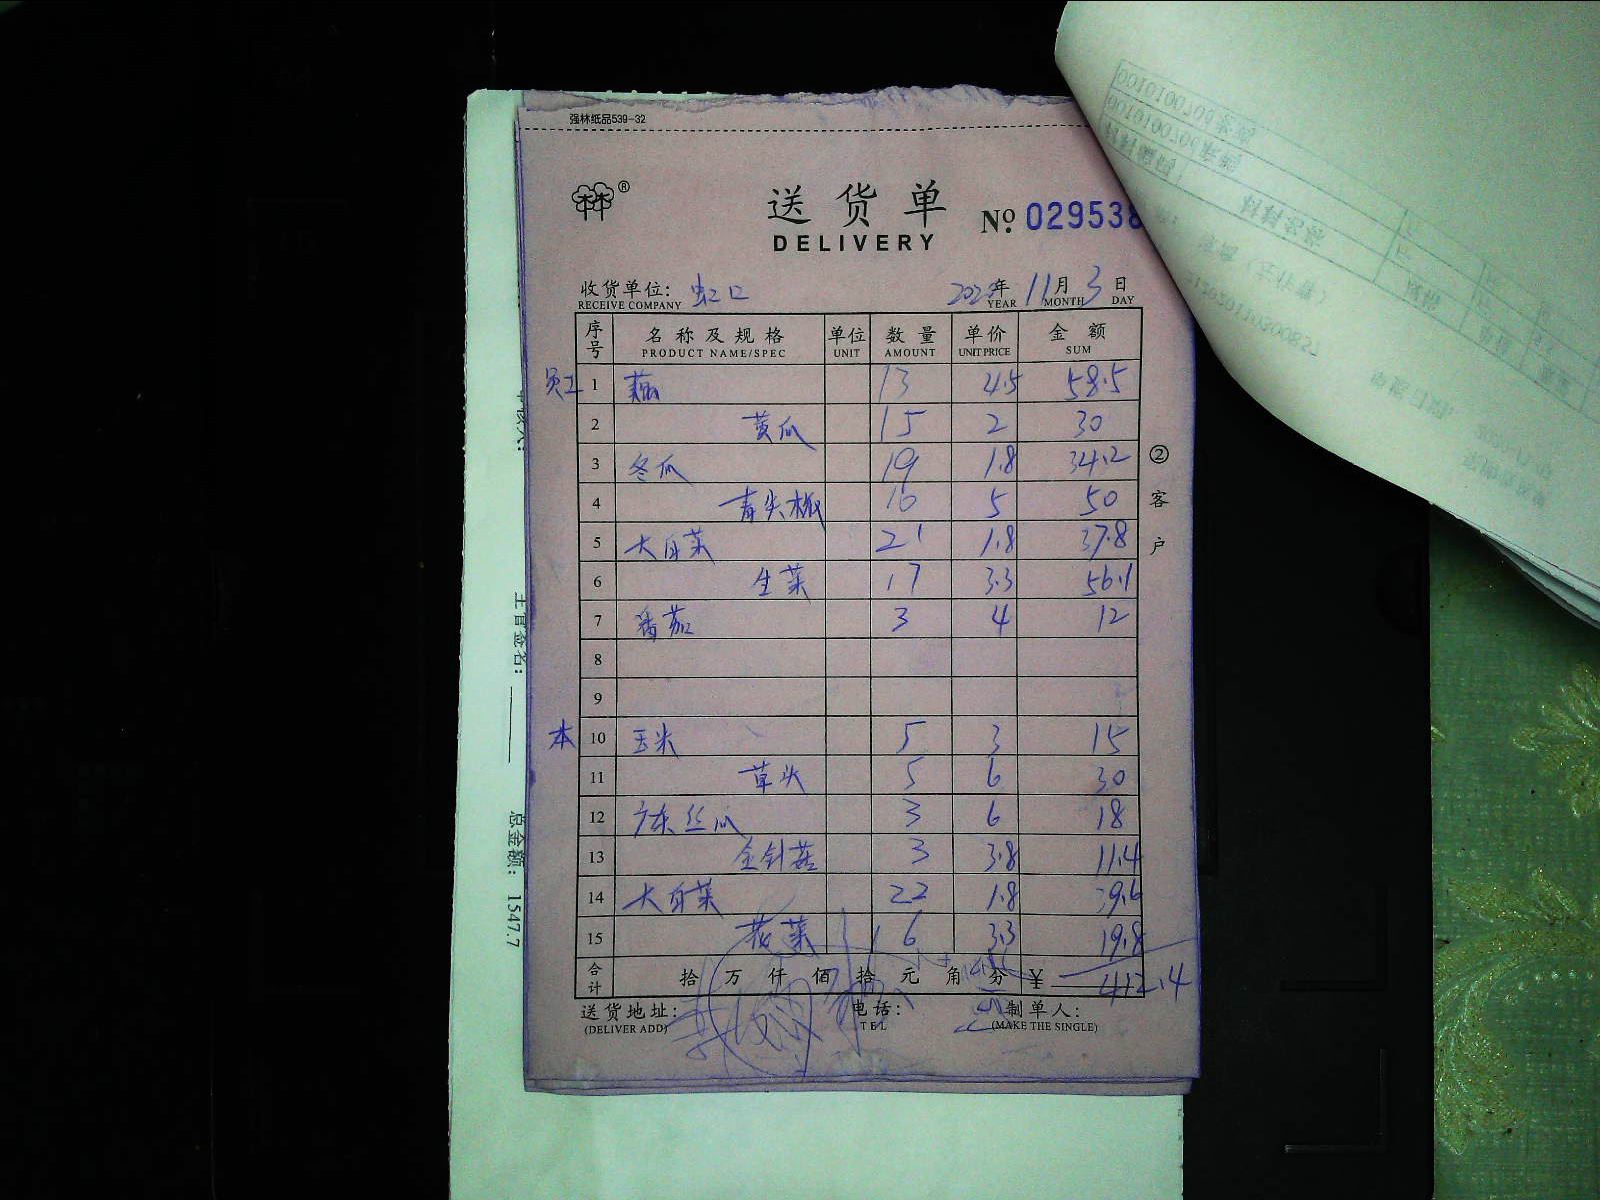 强林纸品539-32
®
送货单
DELIVERY
Nº 029538
收货单位: 虹口 2020年11月3日
RECEIVE COMPANY YEAR MONTH DAY
序号 名称及规格 单位 数量 单价 金额
PRODUCT NAME/SPEC UNIT AMOUNT UNIT PRICE SUM
员工 1 藕 13 4.5 58.5
2 黄瓜 15 2 30
3 冬瓜 19 1.8 34.2
4 青头椒 10 5 50
5 大白菜 21 1.8 37.8
6 生菜 17 3.3 56.1
7 番茄 3 4 12
8
9
本 10 玉米 5 3 15
11 草头 5 6 30
12 广东丝瓜 3 6 18
13 金针菇 3 3.8 11.4
14 大白菜 22 1.8 39.6
15 花菜 6 3.3 19.8
合计 拾 万 仟 佰 拾 元 角 分 ¥ 412.4
送货地址: 电话: 制单人:
(DELIVER ADD) TEL (MAKE THE SINGLE)
②客户
主管签名:
总金额: 1547.7